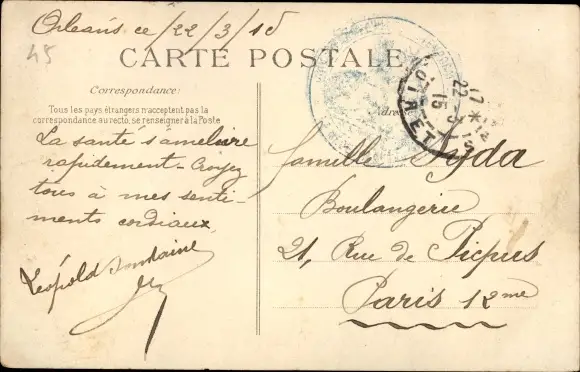 Orléans ce / 22 / 3 / 15
45
CARTE POSTALE
Correspondance:
Tous les pays étrangers n'acceptent pas la
correspondance au recto, se renseigner à la Poste
La santé s'améliore
rapidement - Croyez
tous à mes senti-
ments cordiaux
Léopold
Adre
LOIRET
famille Syda
Boulangerie
21, Rue de Picpus
Paris 12me